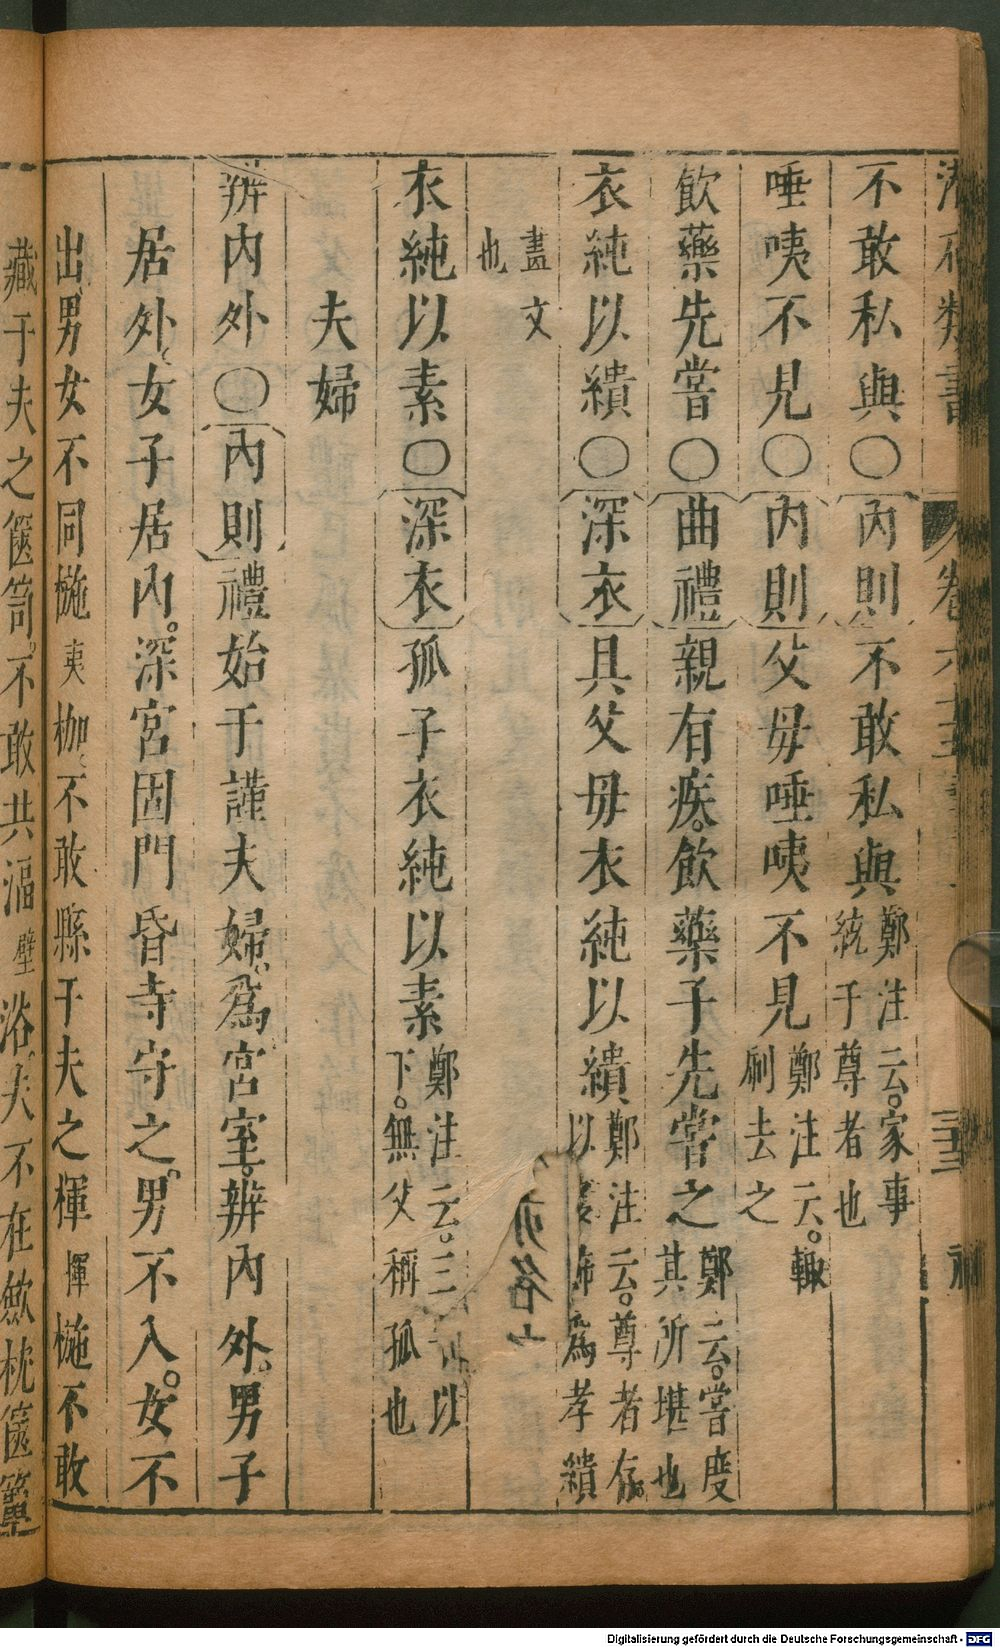 不敢私與〇內則不敢私與鄭注云家事統于尊者也
唾咦不見〇內則父母唾咦不見鄭注云輙刷去之
飲藥先嘗〇曲禮親有疾飲藥子先嘗之鄭云嘗度其所堪也
衣純以繢〇深衣具父母衣純以繢鄭注云尊者存以 飾為孝繢
畫文也
衣純以素〇深衣孤子衣純以素鄭注云三 以下無父稱孤也
夫婦
辨內外〇內則禮始于謹夫婦為宮室辨內外男子
居外女子居內深宮固門昏寺守之男不入女不
出男女不同椸夷枷不敢縣于夫之楎揮椸不敢
藏于夫之篋笥不敢共湢壁浴夫不在歛枕篋簟
Digitalisierung gefördert durch die Deutsche Forschungsgemeinschaft - DFG